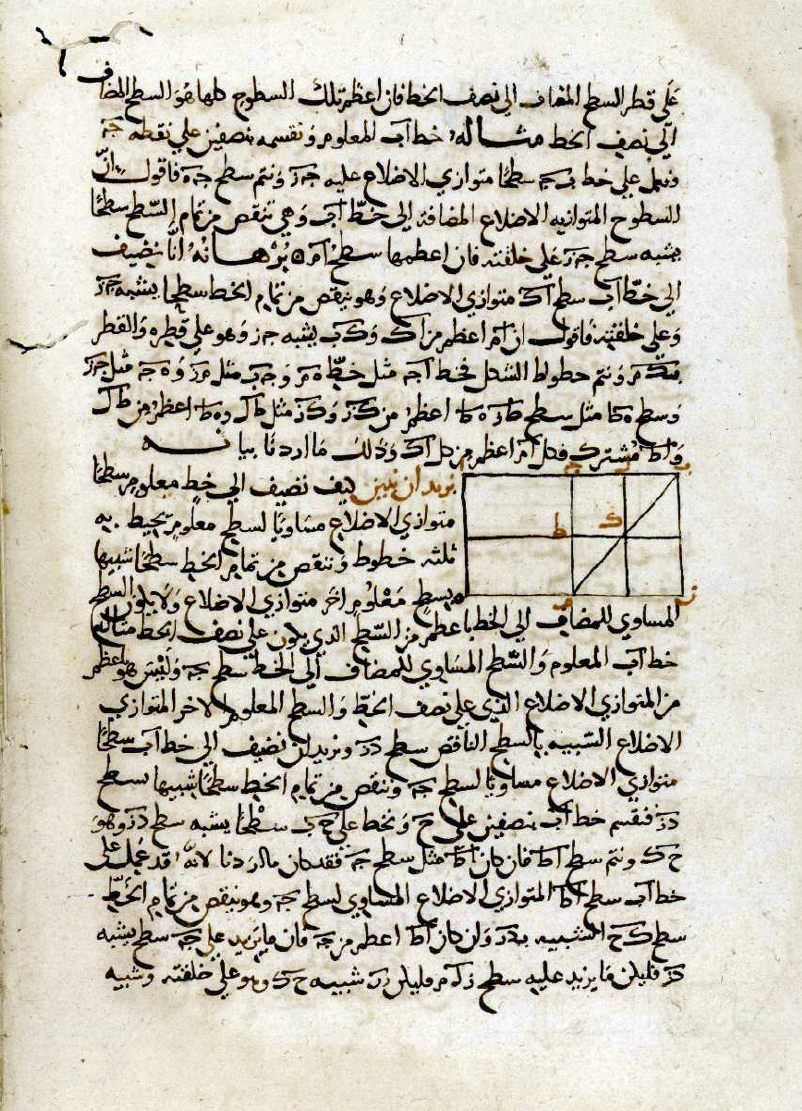 على قطر السطح المضاف الى نصف الخط فان اعظم تلك السطوح كلها هو السطح المضاف
الى نصف الخط مثاله خط اب المعلوم ونقسمه بنصفين على نقطة جـ
ونعمل على خط ب جـ سطحا متوازي الاضلاع عليه جـ ز ونتم سطح جـ فاقول ان
السطوح المتوازيه الاضلاع المضافة الى خط اب وهي تنقص من تمام السطح سطحا
يشبه سطح جـ ز على خلقته فان اعظمها سطح ام برهانه انا نضيف
الى خط اب سطح اك متوازي الاضلاع وهو ينقص من تمام الخط سطحا يشبه جـ ز
وعلى خلقته فاقول ان ام اعظم من اك وك ب يشبه جـ ز وهو على قطره والقطر
ونتم خطوط الشكل فخط ا جـ مثل خط ه م و جـ ب مثل م ز و ه جـ مثل جـ ز
وسطح ه ط مثل سطح ط ز ه ط اعظم من ك ز وك ز مثل ط ل وه ط اعظم من ط ل
و ا ط مشترك فكل ام اعظم من كل اك وذلك ما اردنا بيانه
نريد ان نبين كيف نضيف الى خط معلوم سطحا
متوازي الاضلاع مساويا لسطح معلوم يحيط به
ثلثه خطوط وتنقص من تمام الخط سطحا شبيها
بسطح معلوم اخر متوازي الاضلاع ولا يكون السطح
المساوي للمضاف الى الخط باعظم من السطح الذي يكون على نصف الخط مثاله
خط اب المعلوم والسطح المساوي للمضاف الى الخط سطح جـ وليس هو اعظم
من المتوازي الاضلاع الذي على نصف الخط والسطح المعلوم الاخر المتوازي
الاضلاع الشبيه بالسطح الناقص سطح د ز ونريد ان نضيف الى خط اب سطحا
متوازي الاضلاع مساويا لسطح جـ وتنقص من تمام الخط سطحا شبيها بسطح
د ز فنقسم خط اب بنصفين على ح ونخط على ح ب سطحا يشبه سطح د ز وهو
ح ك ونتم سطح ا ط فان كان ا ط مثل سطح جـ فقد كان ما اردنا لانه قد عمل على
خط اب سطح ا ط المتوازي الاضلاع المساوي لسطح جـ وهو ينقص من تمام الخط
سطح ك ح الشبيه بـ د ز وان كان ا ط اعظم من جـ فان ما يزيد على جـ سطح يشبه
د ز فليكن ما يزيد عليه سطح شبيه ح ك وهو على خلقته وشبيه